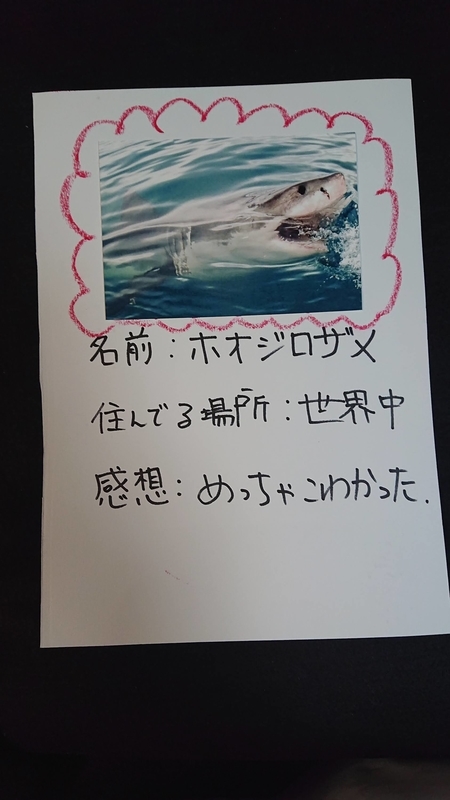 名前：ホオジロザメ
住んでる場所：世界中
感想：めっちゃこわかった.